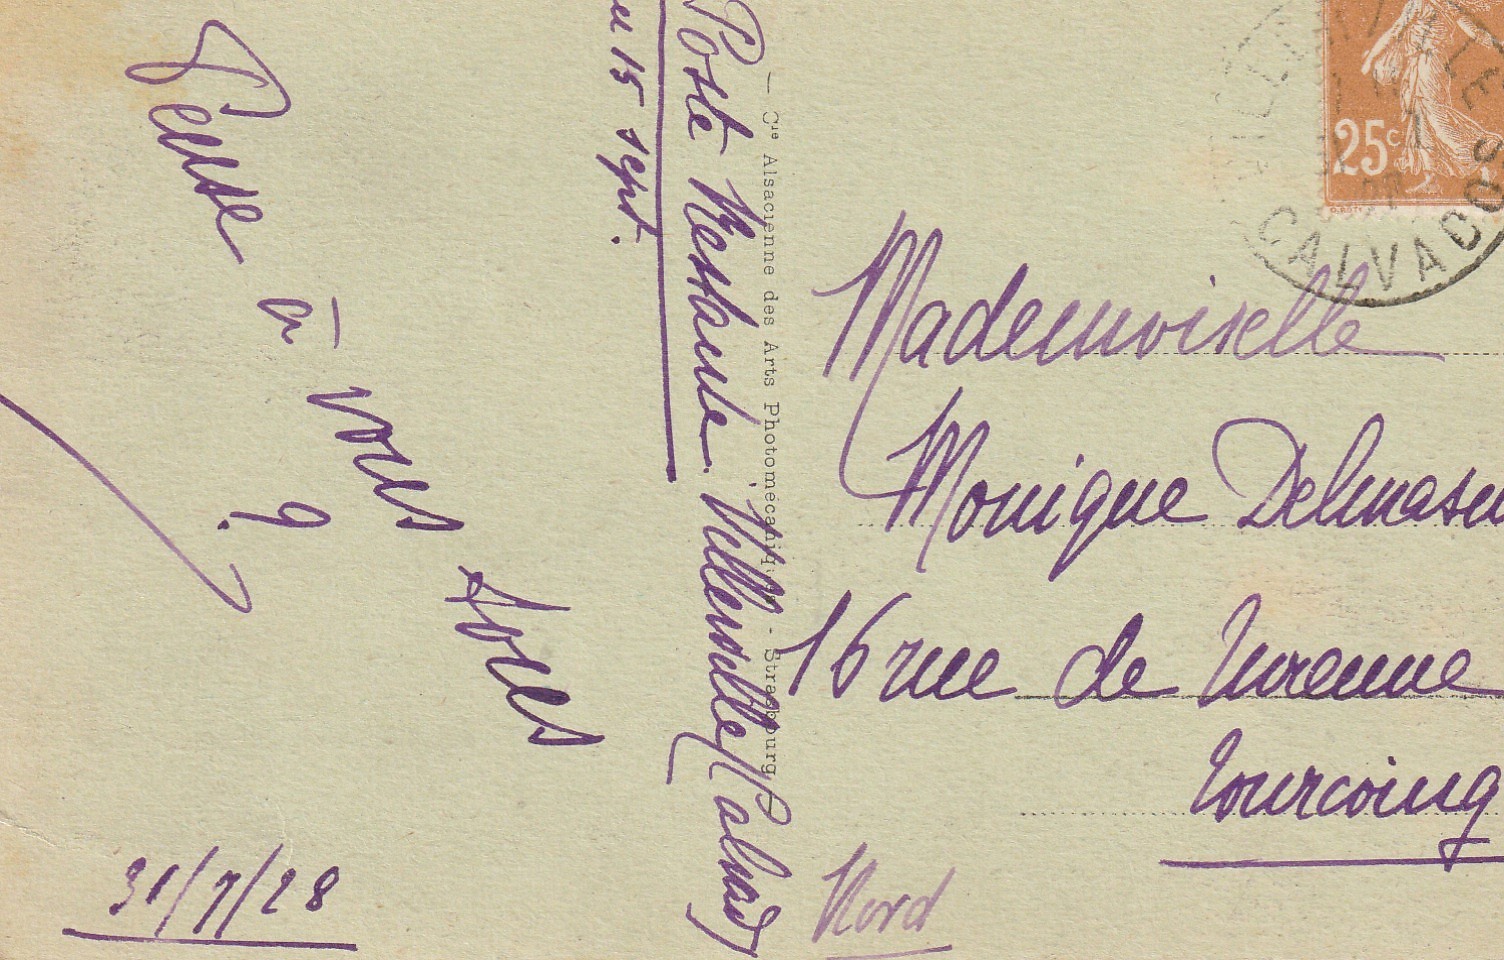 Pense à vous tous
9.
31/7/28
Poste Restante Villerville (Calvados
au 15 sept.
— Cie Alsacienne des Arts Photomécaniques - Strasbourg
25c
CALVADOS
Mademoiselle
Monique Delmasu
16 rue de Turenne
Tourcoing
Nord